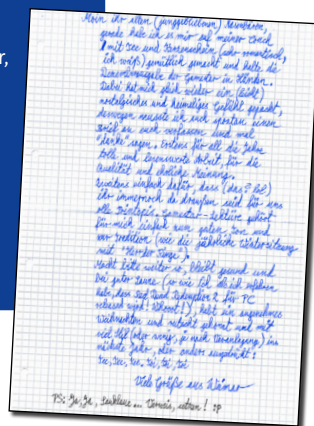 r,
Moin ihr alten (junggebliebenen) Haudegen,
gerade habe ich es mir auf meiner Couch
mit Tee und Kerzenschein (sehr romantisch,
ich weiß) gemütlich gemacht und halte die
der Gamestar in Händen.
Dabei hat mich gleich wieder ein (leicht)
nostalgisches und heimeliges Gefühl gepackt,
deswegen musste ich euch spontan einen
Brief an euch verfassen und mal
"danke" sagen. Erstens für all die Jahre
tolle und Arbeit, für die
Qualität und ehrliche Meinung.
Zweitens einfach dafür, dass (das? lol)
ihr immernoch da draußen seid für uns
alle. Gamestar-Lektüre gehört
für mich einfach zum guten Tee und
zur Tradition (wie die jährliche Wintersitzung
mit
Macht bitte weiter so, bleibt gesund und
bei guter Laune (so wie ich als ich erfahren
habe, dass Red Dead Redemption 2 für PC
released wird! Whooot!), habt ein angenehmes
Weihnachten und rutscht gekonnt und mit
viel Stil (oder wenig, je nach Veranlagung) ins
nächste Jahr, oder anders ausgedrückt:
Viele Grüße aus Weimar
PS: Ja, Ja, ... Verweis, setzen! :P